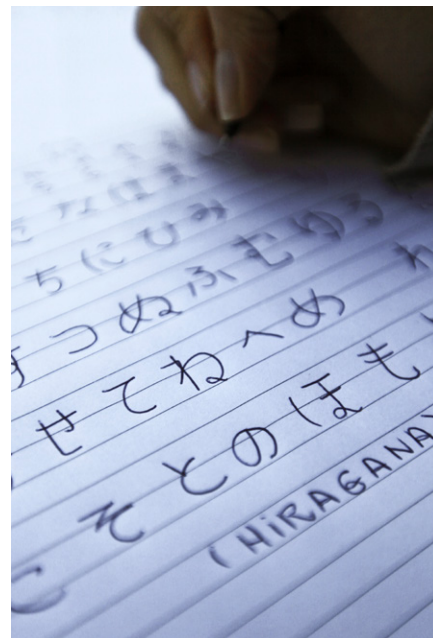 なはま
ちにひみ
すつぬふむゆる
せてねへめ
こそとのほも
(HiRAGANA)